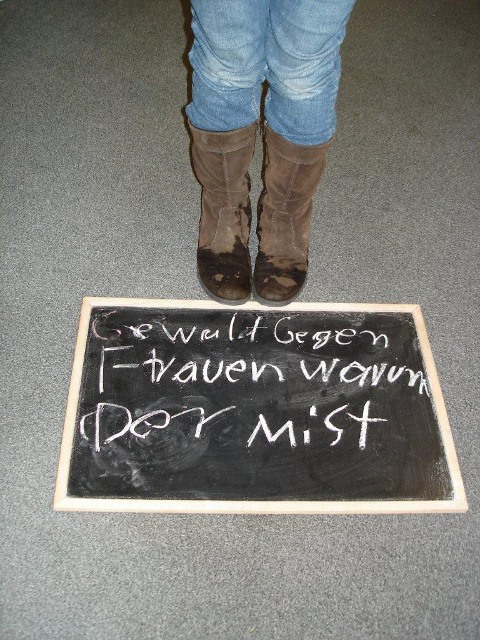 Gewalt Gegen
Frauen warum
Der Mist